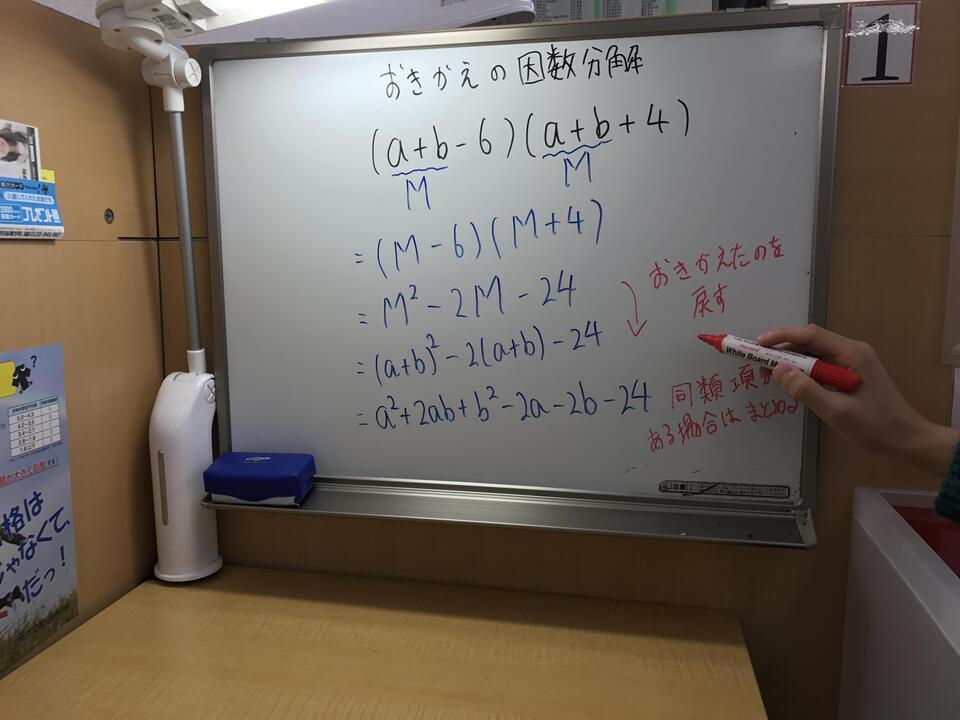 おきかえの因数分解
(a+b-6)(a+b+4)
M M
=(M-6)(M+4)
=M²-2M-24
=(a+b)²-2(a+b)-24
=a²+2ab+b²-2a-2b-24
おきかえたのを
戻す
同類項が
ある場合はまとめる
White Board M
1
プレゼント!!
格は
じゃなくて、
だっ!